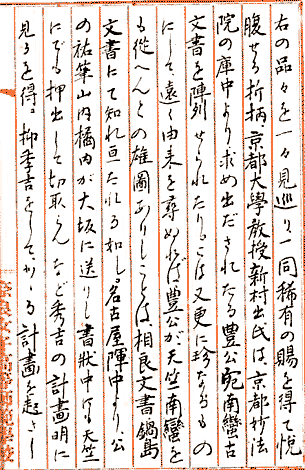 右の品々を一々見巡り一同稀有の賜を得て悦
腹せる折柄京都大學教授新村出氏は、京都妙法
院の庫中より求め出だされたる豊公宛南蠻古
文書を陣列せられたり。こは又更に珍なるもの
にして遠く由来を尋ぬれば豊公が天竺南蠻を
も従へんとの雄圖ありしことは、相良文書鍋島
文書にて知れ亘たれる如し。名古屋陣中より、公
の祐筆山内橘内が大坂に送りし書狀中にも天竺
にでも押出して切取らんなど秀吉の計畫明に
見るを得。抑秀吉をしてかゝる計畫を起さし